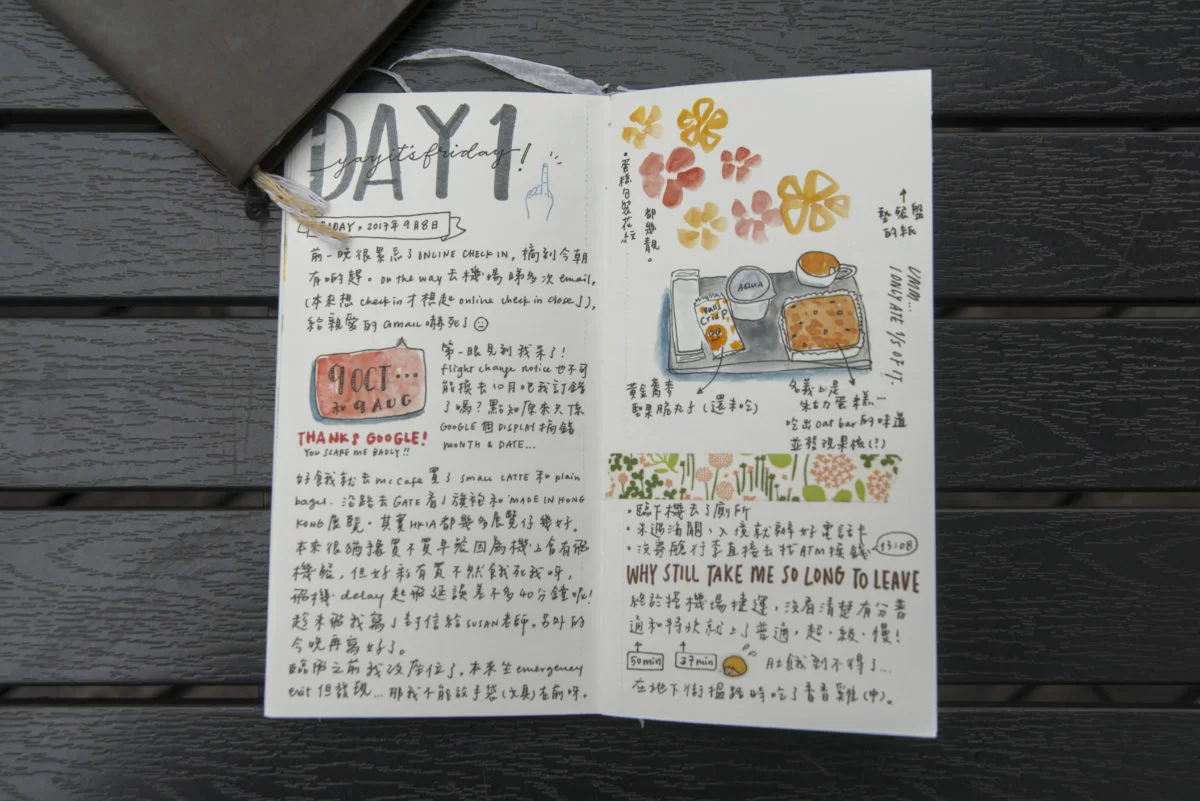 DAY 1
yay it's friday!
FRIDAY。2017年9月8日
前一晚很累忘了ONLINE CHECK IN, 搞到今朝
有啲趕。on the way 去機場睇多次email,
(本來想check in 才想起online check in close了),
給親愛的Gmail嚇死了
9 OCT...
和 9 AUG
THANKS GOOGLE!
YOU SCARE ME BADLY!!
第一眼見到我呆了!
flight change notice 也不可
能換去10月吧我訂錯
了嗎? 點知原來只係
GOOGLE 個 DISPLAY 搞錯
MONTH & DATE...
好餓就去Mc Cafe買了SMALL LATTE 和 plain
bagel. 沿路去GATE看了旗袍和'MADE IN HONG
KONG展覽. 其實HKIA都幾多展覽仔幾好。
本來很猶豫買不買早餐因為機上會有飛
機餐, 但好彩有買不然餓死我呀,
飛機 delay 起飛延誤差不多40分鐘呢!
趁未飛我寫了封信給SUSAN老師。另外的
今晚再寫好了。
臨飛之前我改座位了。本來坐emergency
exit 但發現...那我不能放手袋(文具)在前呀。
・蛋糕包裝花紋
都幾靚。
↑
墊餐盤
的紙
I ONLY ATE 1/5 OF IT.
AQUA
Crisp
黃金蕎麥
堅果脆丸子(還未吃)
名義上是
朱古力蛋糕...
吃出oat bar的味道
並發現果核(?)
・臨下機去了廁所
・未過海關、入境就辦好電話卡
・沒寄艙行李直接去找ATM換錢
13:08
WHY STILL TAKE ME SO LONG TO LEAVE
終於搭機場捷運, 沒看清楚有分普
通和特快就上了普通, 超・級・慢!
50min
37min
肚餓到不得了...
在地下街搵路時吃了香香雞(中)。